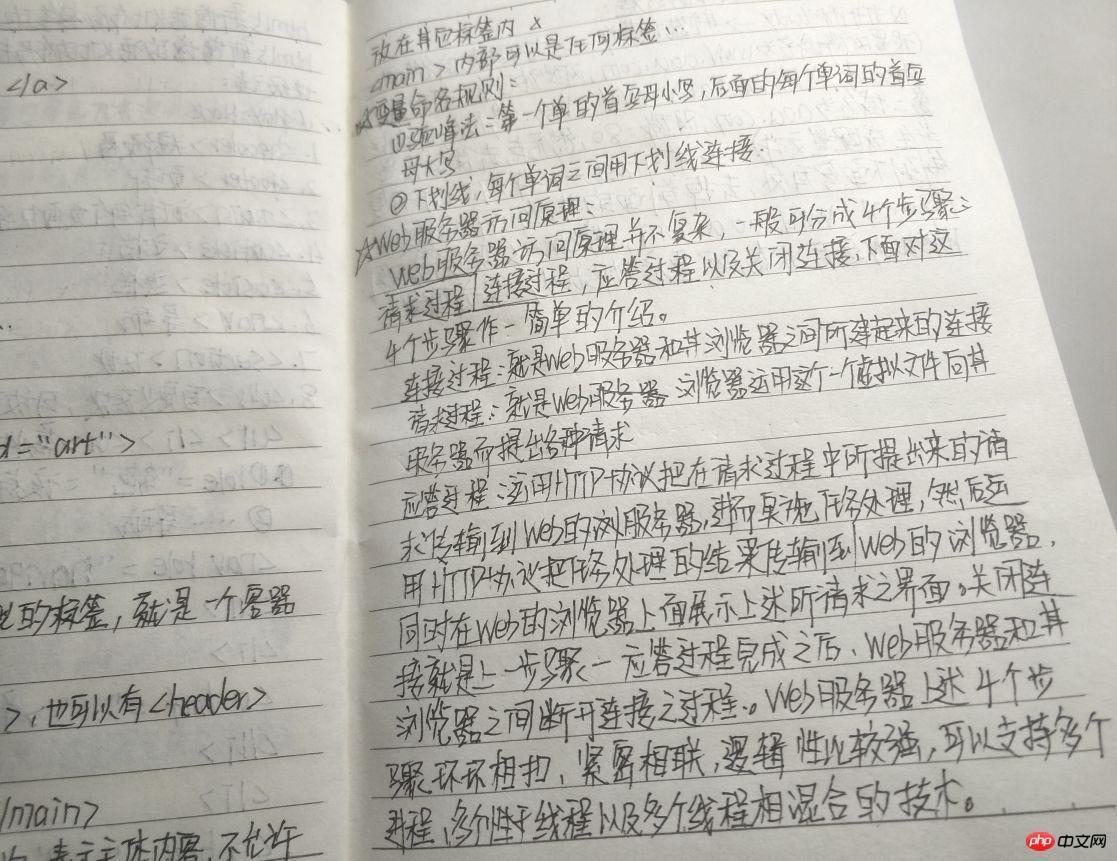 </a>
d="art">
的标签,就是一个容器
>,也可以有<header>
/main>
表示主体内容,不允许
放在其它标签内
<main>内部可以是任何标签…
变量命名规则:
①驼峰法:第一个单的首字母小写,后面的每个单词的首字
母大写
②下划线,每个单词之间用下划线连接.
☆Web服务器访问原理:
Web服务器访问原理并不复杂 一般可分成4个步骤:
请求过程,连接过程,应答过程以及关闭连接,下面对这
4个步骤作一简单的介绍。
连接过程:就是Web服务器和其浏览器之间所建起来的连接
请求过程:就是Web服务器 浏览器运用这个一个虚拟文件向其
服务器而提出各种请求
应答过程:运用HTTP协议把在请求过程中所提出来的请
求传输到Web的浏服务器,进而实施任务处理,然后运
用HTTP协议把任务处理的结果传输到Web的浏览器,
同时在Web的浏览器上面展示上述所请求之界面。关闭连
接就是上一步骤一应答过程完成之后、Web服务器和其
浏览器之间断开连接之过程。Web服务器上述4个步
骤环环相扣、紧密相联,逻辑性比较强,可以支持多个
进程,多个线程以及多个线程相混合的技术。
php 中文网